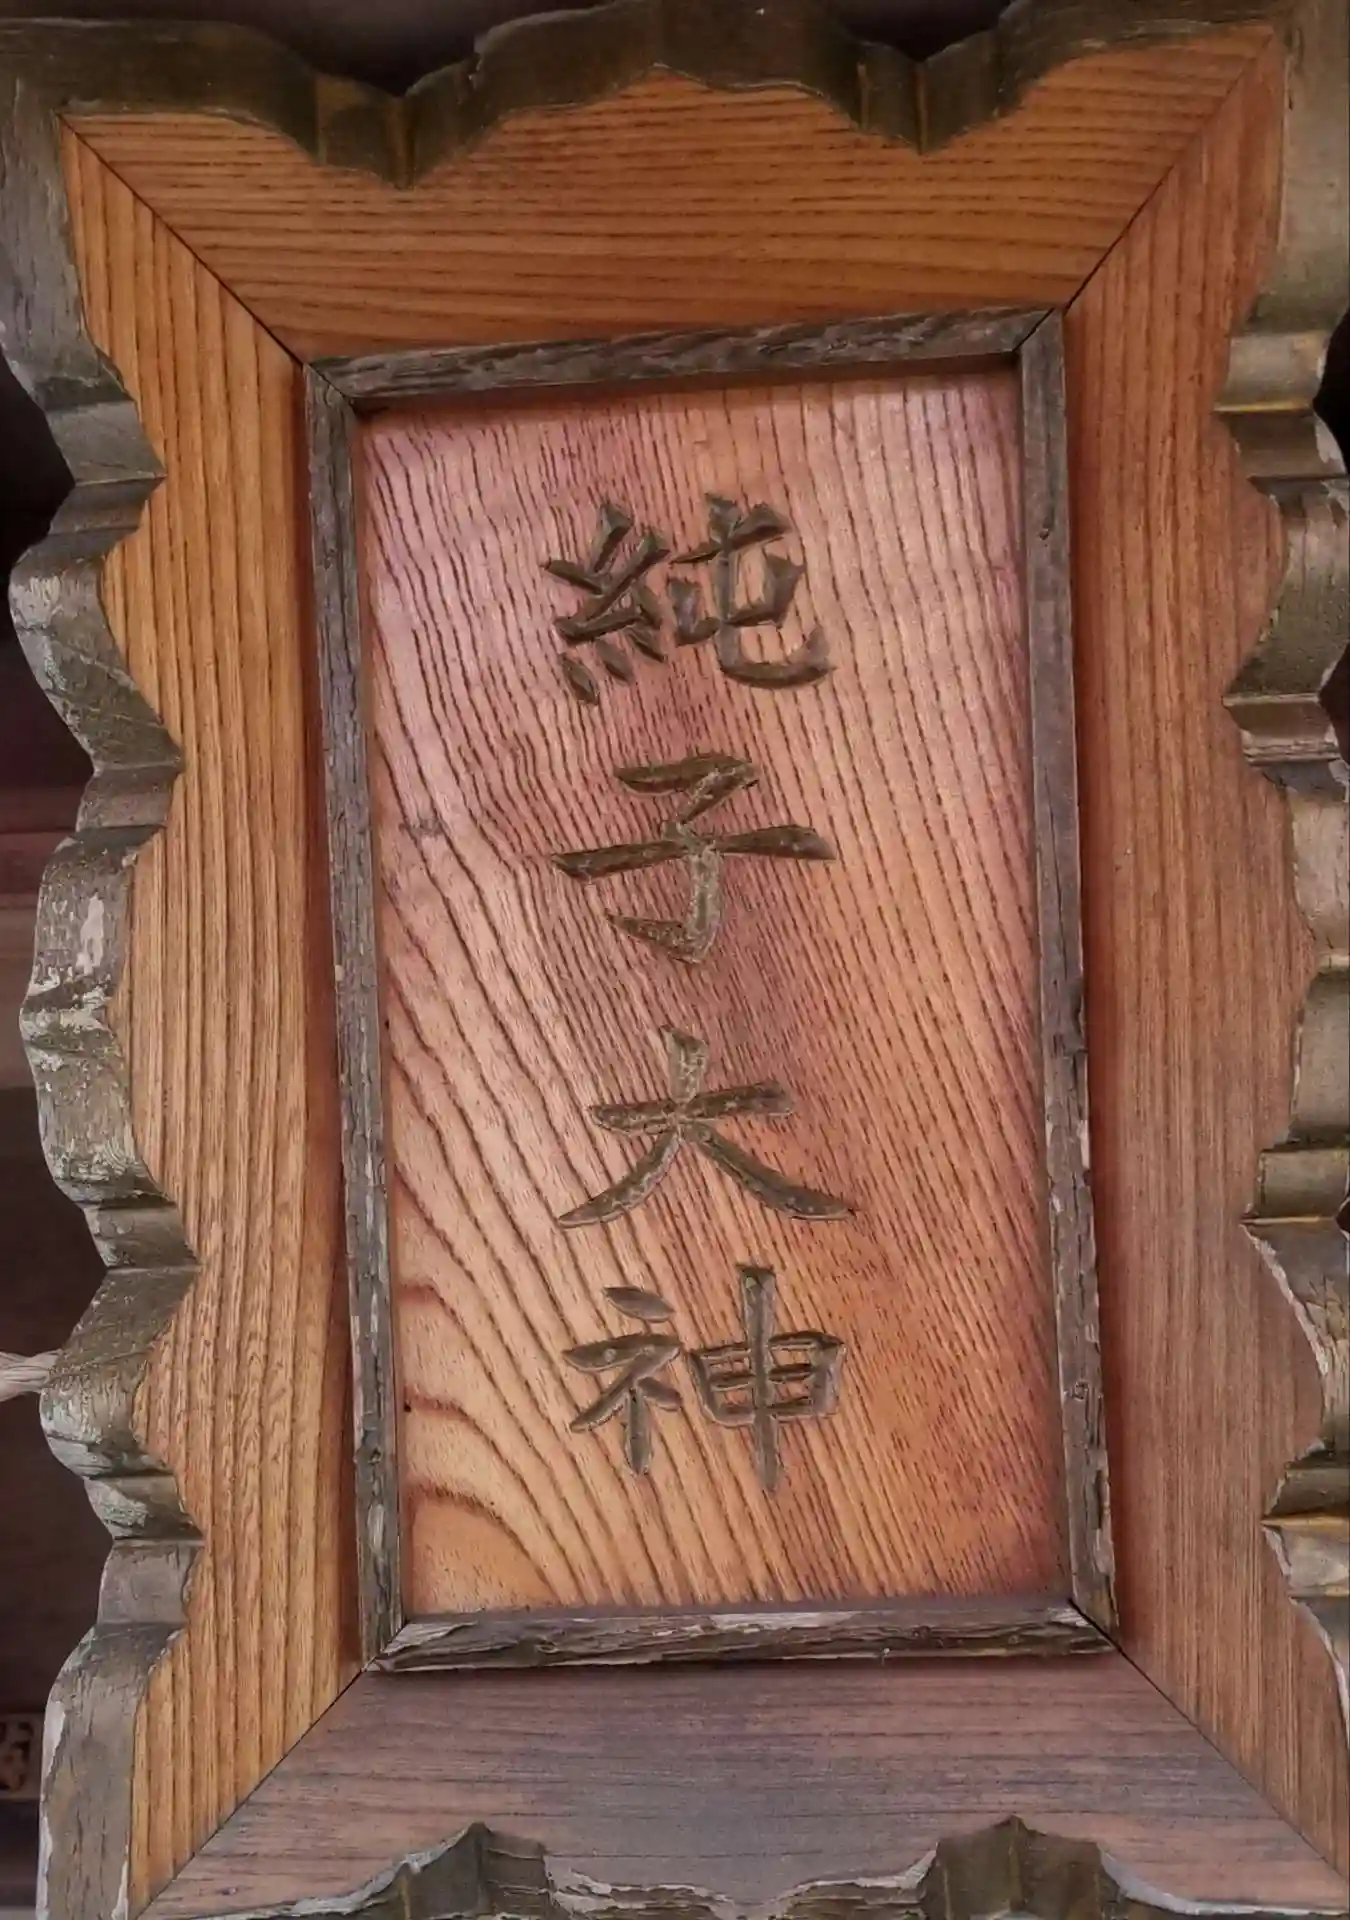 純子大神